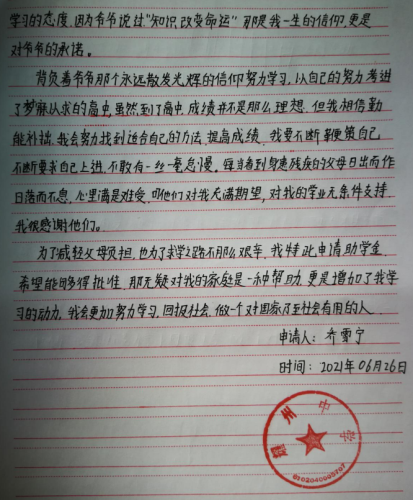 学习的态度,因为爷爷说过"知识,改变命运"那是我一生的信仰,更是
对爷爷的承诺。
背负着爷爷那个永远散发光辉的信仰努力学习,以自己的努力考进
了梦寐以求的高中,虽然到了高中,成绩并不是那么理想,但我相信勤
能补拙,我会努力找到适合自己的方法,提高成绩,我要不断鞭策自己,
不断要求自己上进,不敢有一丝一毫怠慢。每当看到身患残疾的父母日出而作
日落而不息,心里满是难受,他们对我充满期望,对我的学业无条件支持,
我很感谢他们。
为了减轻父母负担,也为了求学之路不那么艰辛,我特此申请助学金,
希望能够得批准,那无疑对我的家庭是一种帮助,更是增加了我学
习的动力,我会更加努力学习,回报社会,做一个对国家乃至社会有用的人.
申请人:乔雪宁
时间:2021年06月26日
州中学